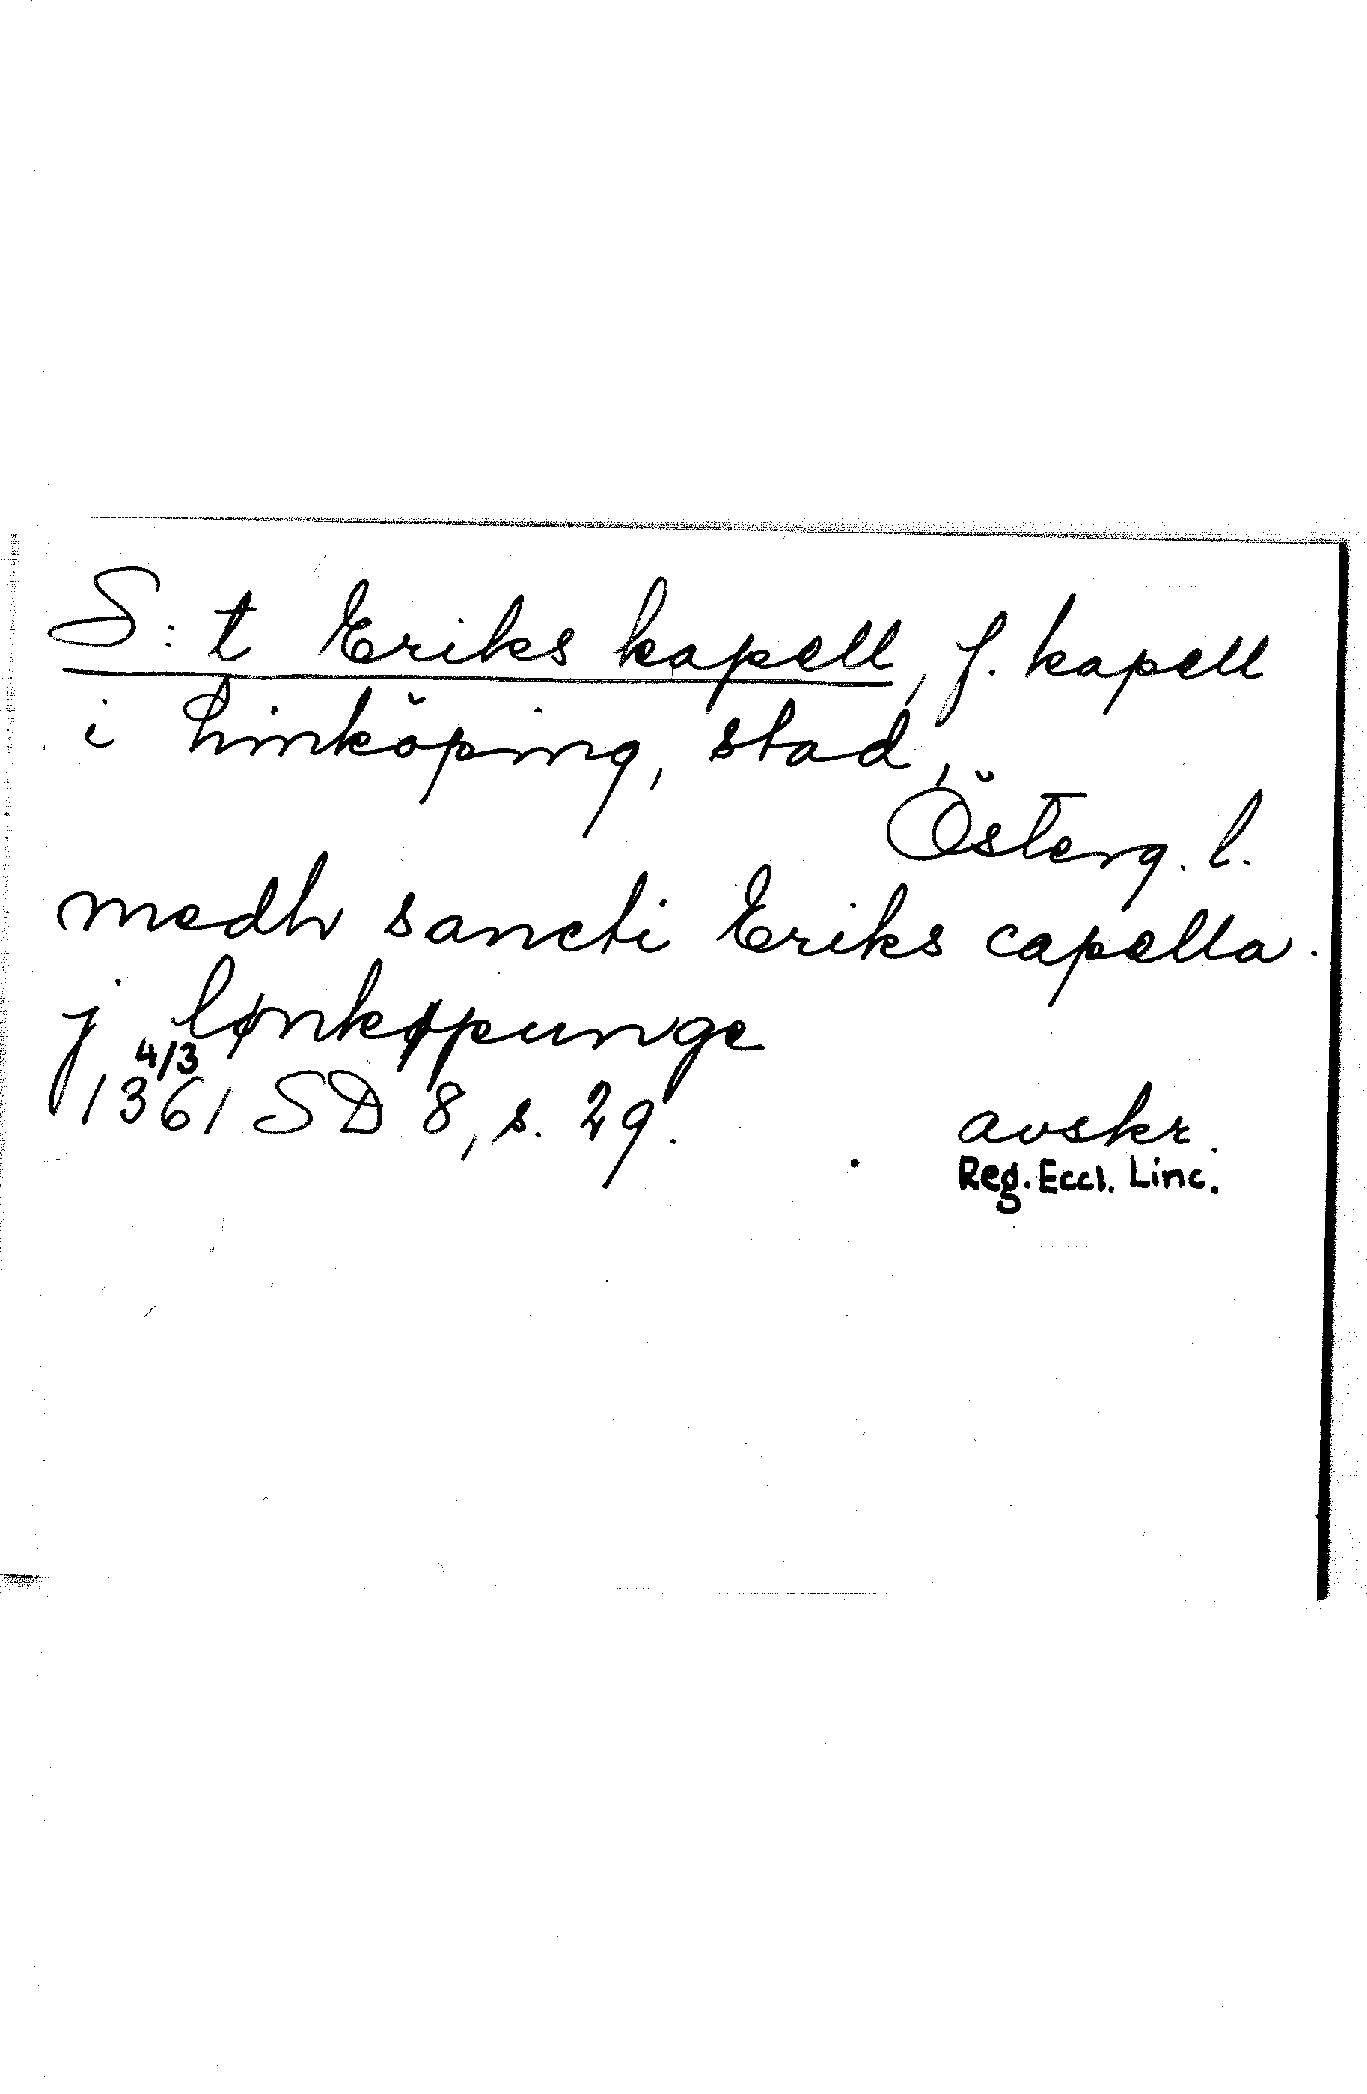 S:t Eriks kapell, f. kapell
i Linköping, stad,
Österg. l.
medh sancti Eriks capella
j lønkøpunge
4/3
1361 SD 8, s. 29.
avskr.
Reg. Eccl. Linc.